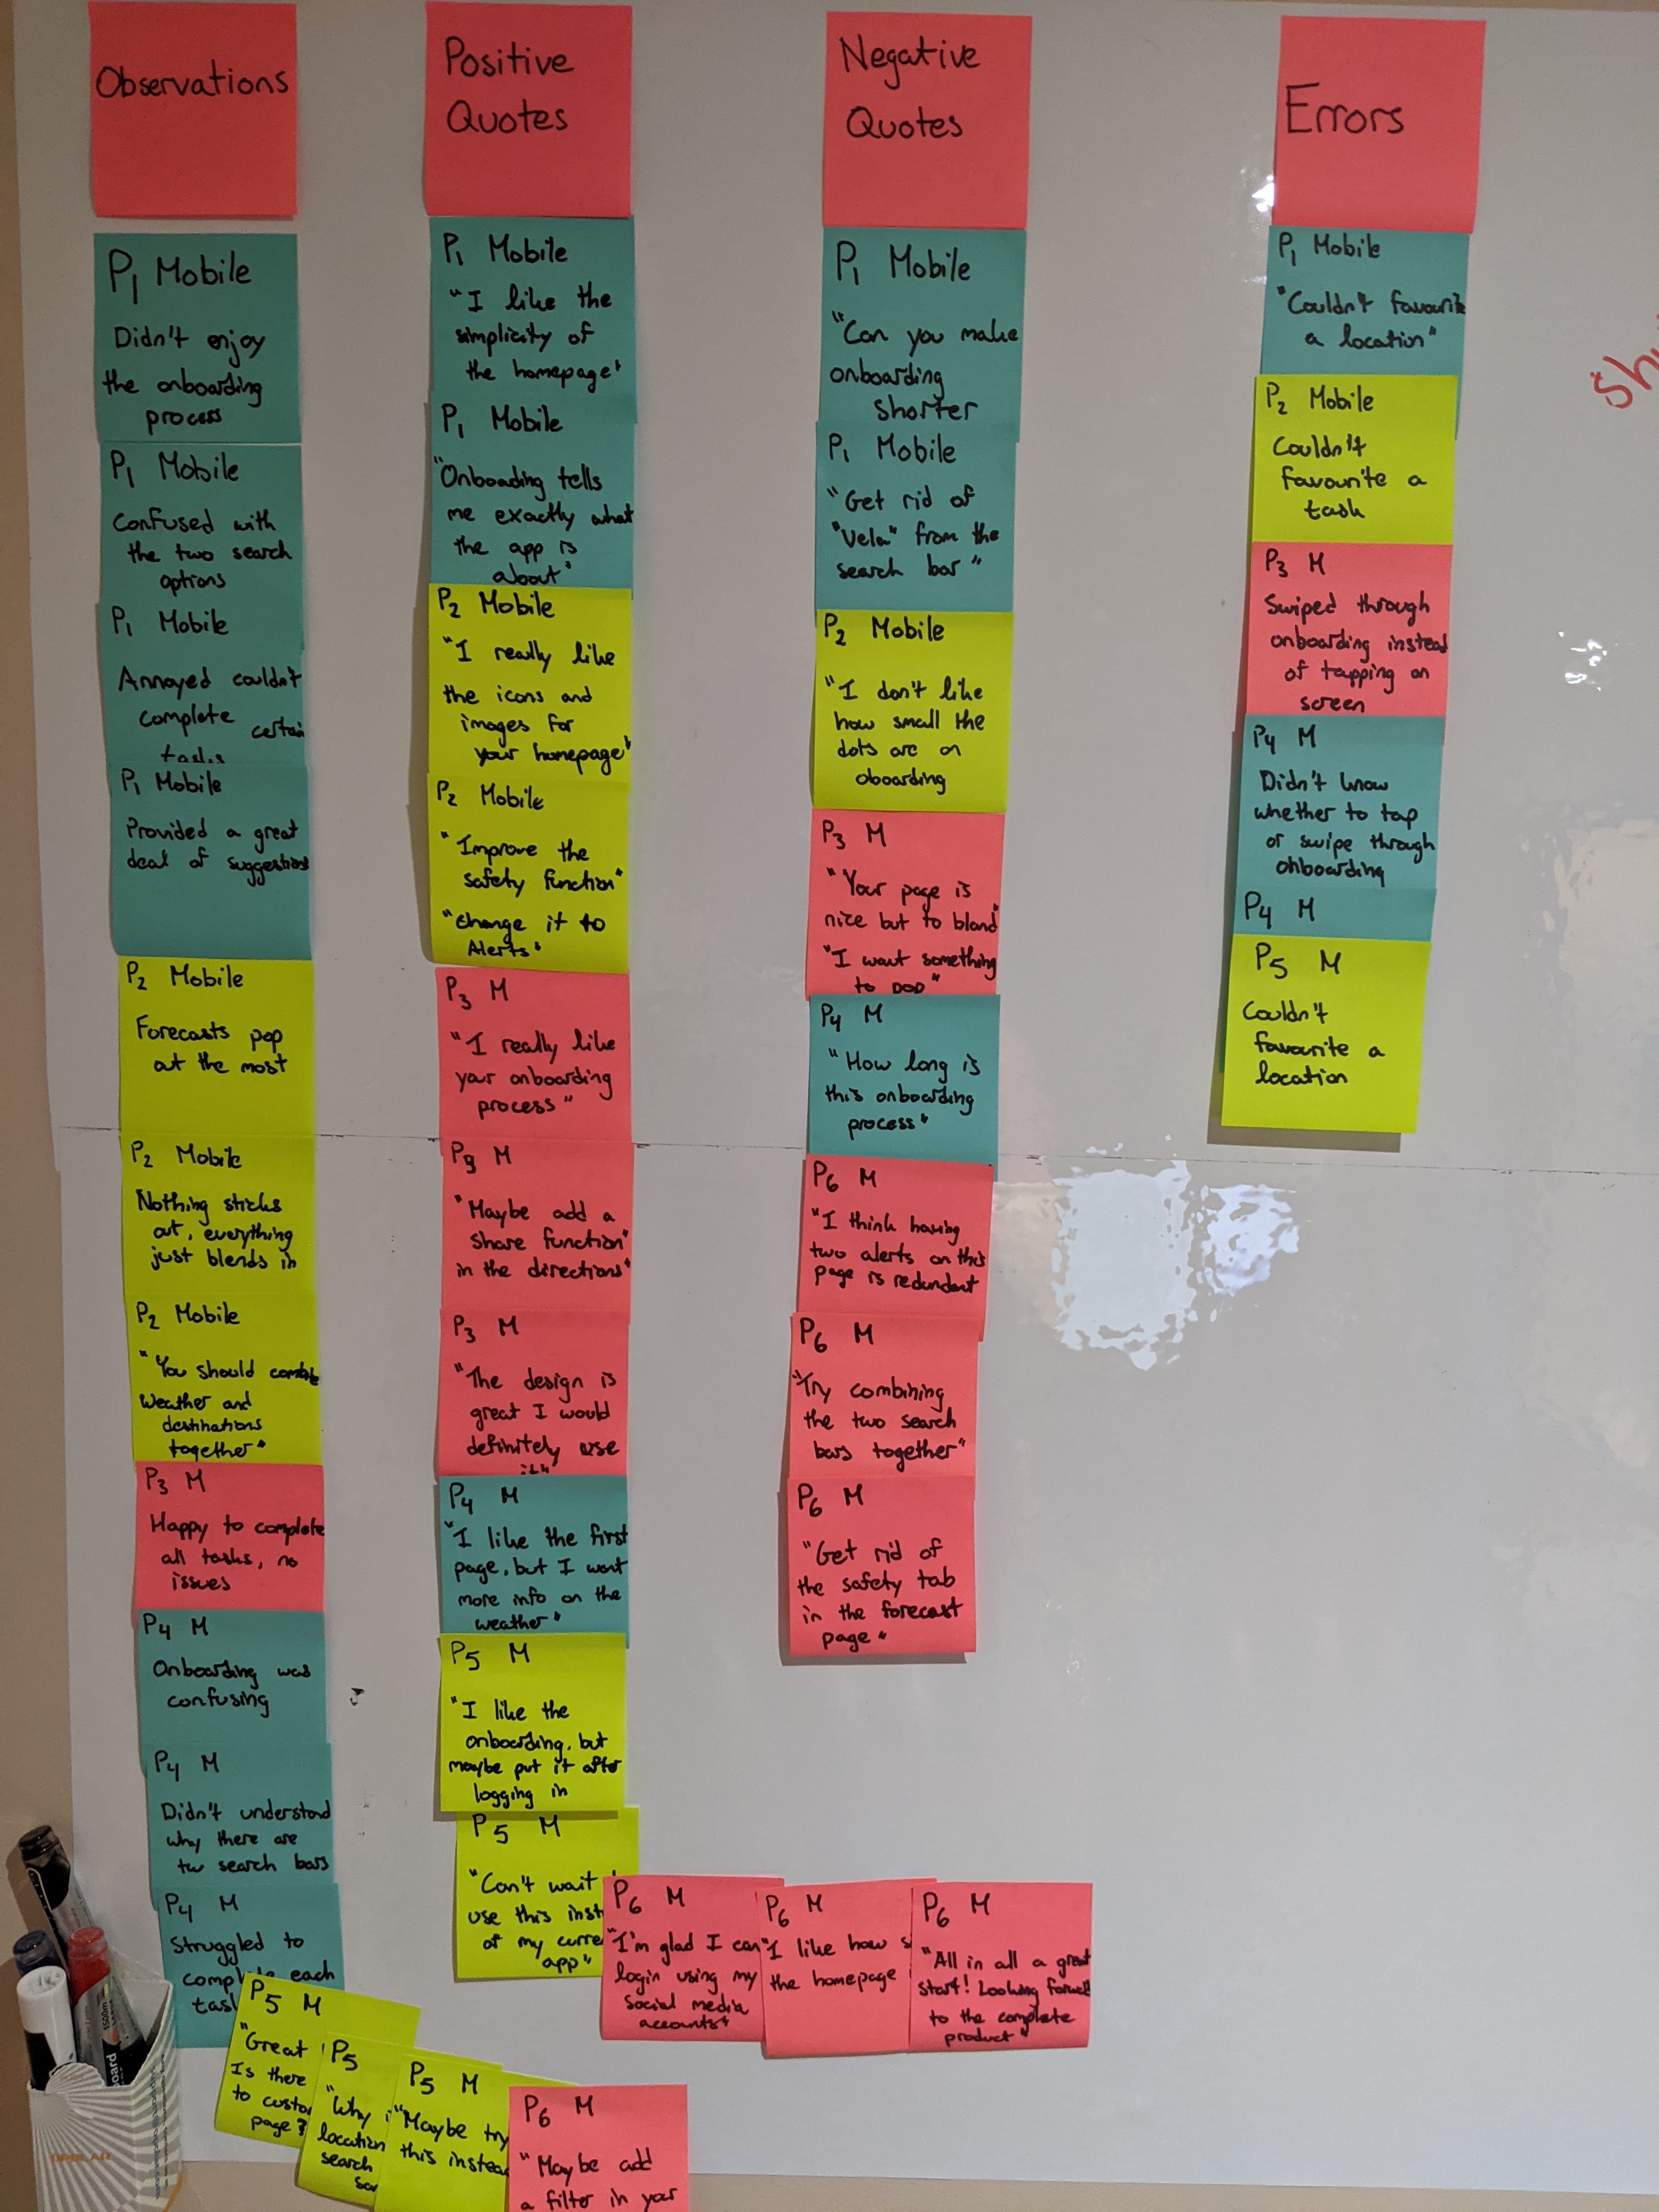 Observations
P1 Mobile
Didn't enjoy
the onboarding
process
P1 Mobile
Confused with
the two search
options
P1 Mobile
Annoyed couldn't
complete certain
tasks
P1 Mobile
Provided a great
deal of suggestions
P2 Mobile
Forecasts pop
out the most
P2 Mobile
Nothing sticks
out, everything
just blends in
P2 Mobile
"You should combine
weather and
destinations
together"
P3 M
Happy to complete
all tasks, no
issues
P4 M
Onboarding was
confusing
P4 M
Didn't understand
why there are
tw search bars
P4 M
Struggled to
each
P5 M
"Great
Is there
to
page?
P5
"Why
location
search
P5 M
"Maybe try
this instead
P6 M
"Maybe add
a filter in your
Positive
Quotes
P1 Mobile
"I like the
simplicity of
the homepage"
P1 Mobile
"Onboading tells
me exactly what
the app is
about"
P2 Mobile
"I really like
the icons and
images for
your homepage"
P2 Mobile
"Improve the
safety function"
"change it to
Alerts"
P3 M
"I really like
your onboarding
process"
P3 M
"Maybe add a
share function"
in the directions"
P3 M
"The design is
great I would
definitely use
it"
P4 M
"I like the first
page, but I want
more info on the
weather"
P5 M
"I like the
onboarding, but
maybe put it after
logging in
P5 M
"Can't wait
use this
of my
app"
P6 M
"I'm glad I can
login using my
social media
accounts"
P6 M
"I like how
the homepage
P6 M
"All in all a great
start! Looking forward
to the complete
product"
Negative
Quotes
P1 Mobile
"Can you make
onboarding
shorter
P1 Mobile
"Get rid of
"Vela" from the
search bar"
P2 Mobile
"I don't like
how small the
dots are on
oboarding
P3 M
"Your page is
nice but to bland"
"I want something
to pop"
P4 M
"How long is
this onboarding
process"
P6 M
"I think having
two alerts on this
page is redundant
P6 M
"Try combining
the two search
bars together"
P6 M
"Get rid of
the safety tab
in the forecast
page"
Errors
P1 Mobile
"Couldn't favourite
a location"
P2 Mobile
Couldn't
favourite a
task
P3 M
Swiped through
onboarding instead
of tapping on
screen
P4 M
Didn't know
whether to tap
or swipe through
onboarding
P4 M
P5 M
Couldn't
favourite a
location